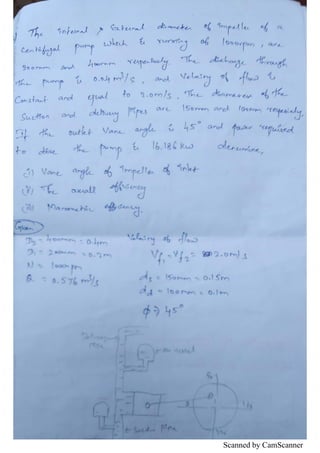 The internal & External diameter of Impeller of a
Centrifugal pump which is running at 1000rpm, are
200mm and 400mm respectively. The discharge through
the pump is 0.04 m³/s, and velocity of flow is
Constant and equal to 2.0m/s. The diameter of the
Suction and delivery pipes are 150mm and 100mm respectively.
If the outlet Vane angle is 45° and power required
to drive the pump is 16.186 kW determine,
(i) Vane angle of Impeller of inlet
(ii) The overall efficiency
(iii) Manometric efficiency.
Given
D₂ = 400mm = 0.4m velocity of flow
D₁ = 200mm = 0.2m Vf₁ = Vf₂ = 2.0m/s
N = 1000rpm ds = 150mm = 0.15m
Q = 0.576 m³/s dd = 100mm = 0.1m
φ ⇒ 45°
Delivery
Pipe
Air vessel
Suction Pipe
Scanned by CamScanner